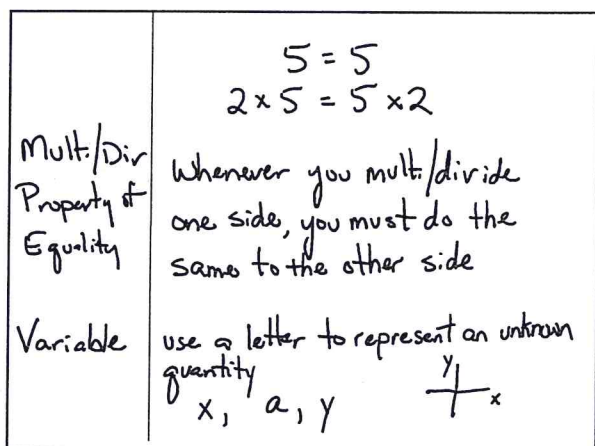 5 = 5
2 × 5 = 5 × 2
Mult./Div
Property of
Equality
Whenever you mult./divide
one side, you must do the
same to the other side
Variable
use a letter to represent an unknown
quantity
x, a, y
y
x